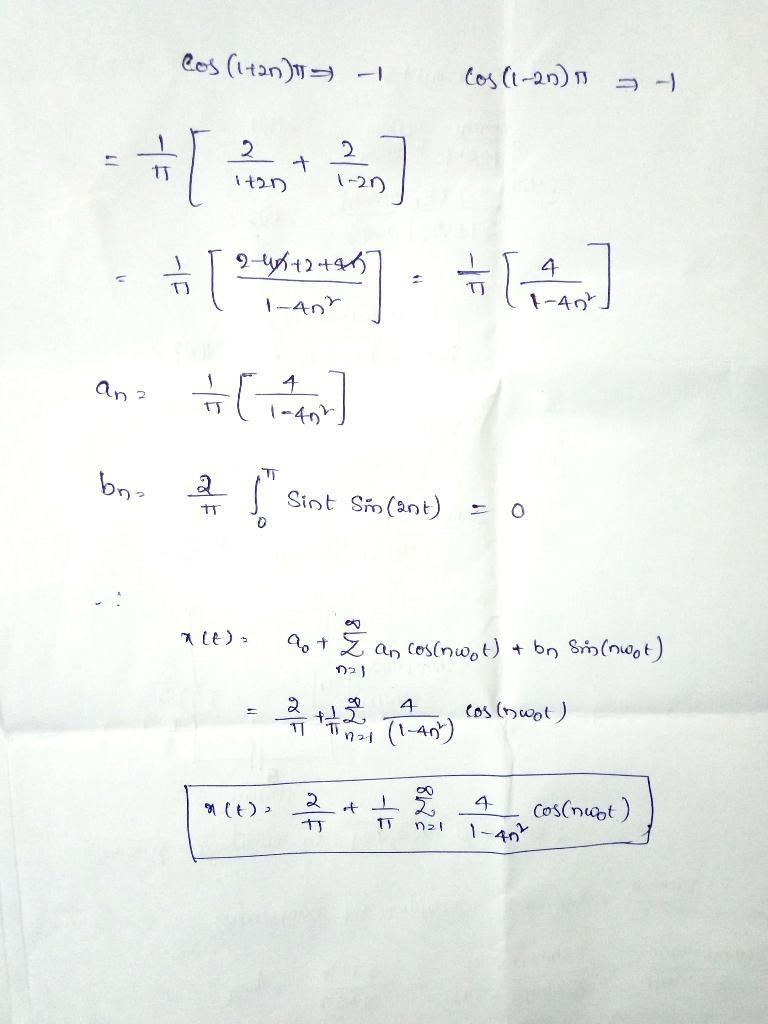 Cos (1+2n)π ⇒ -1 Cos (1-2n) π ⇒ -1
= 1/π [ 2/(1+2n) + 2/(1-2n) ]
= 1/π [ (2-4n+2+4n)/(1-4n²) ] = 1/π [ 4/(1-4n²) ]
an = 1/π [ 4/(1-4n²) ]
bn = 2/π ∫₀^π Sint Sin(2nt) = 0
∴
x(t) = a₀ + Σ_{n=1}^{∞} an cos(nω₀t) + bn Sin(nω₀t)
= 2/π + 1/π Σ_{n=1}^{∞} 4/(1-4n²) cos(nω₀t)
x(t) = 2/π + 1/π Σ_{n=1}^{∞} 4/(1-4n²) cos(nω₀t)